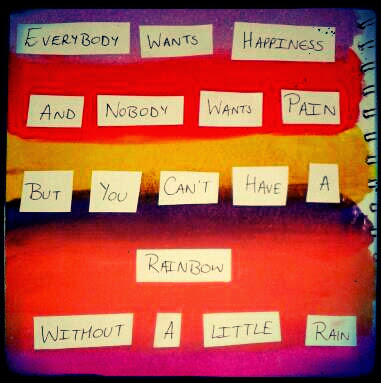 Everybody Wants Happiness
And Nobody Wants Pain
But You Can't Have A
Rainbow
Without A Little Rain